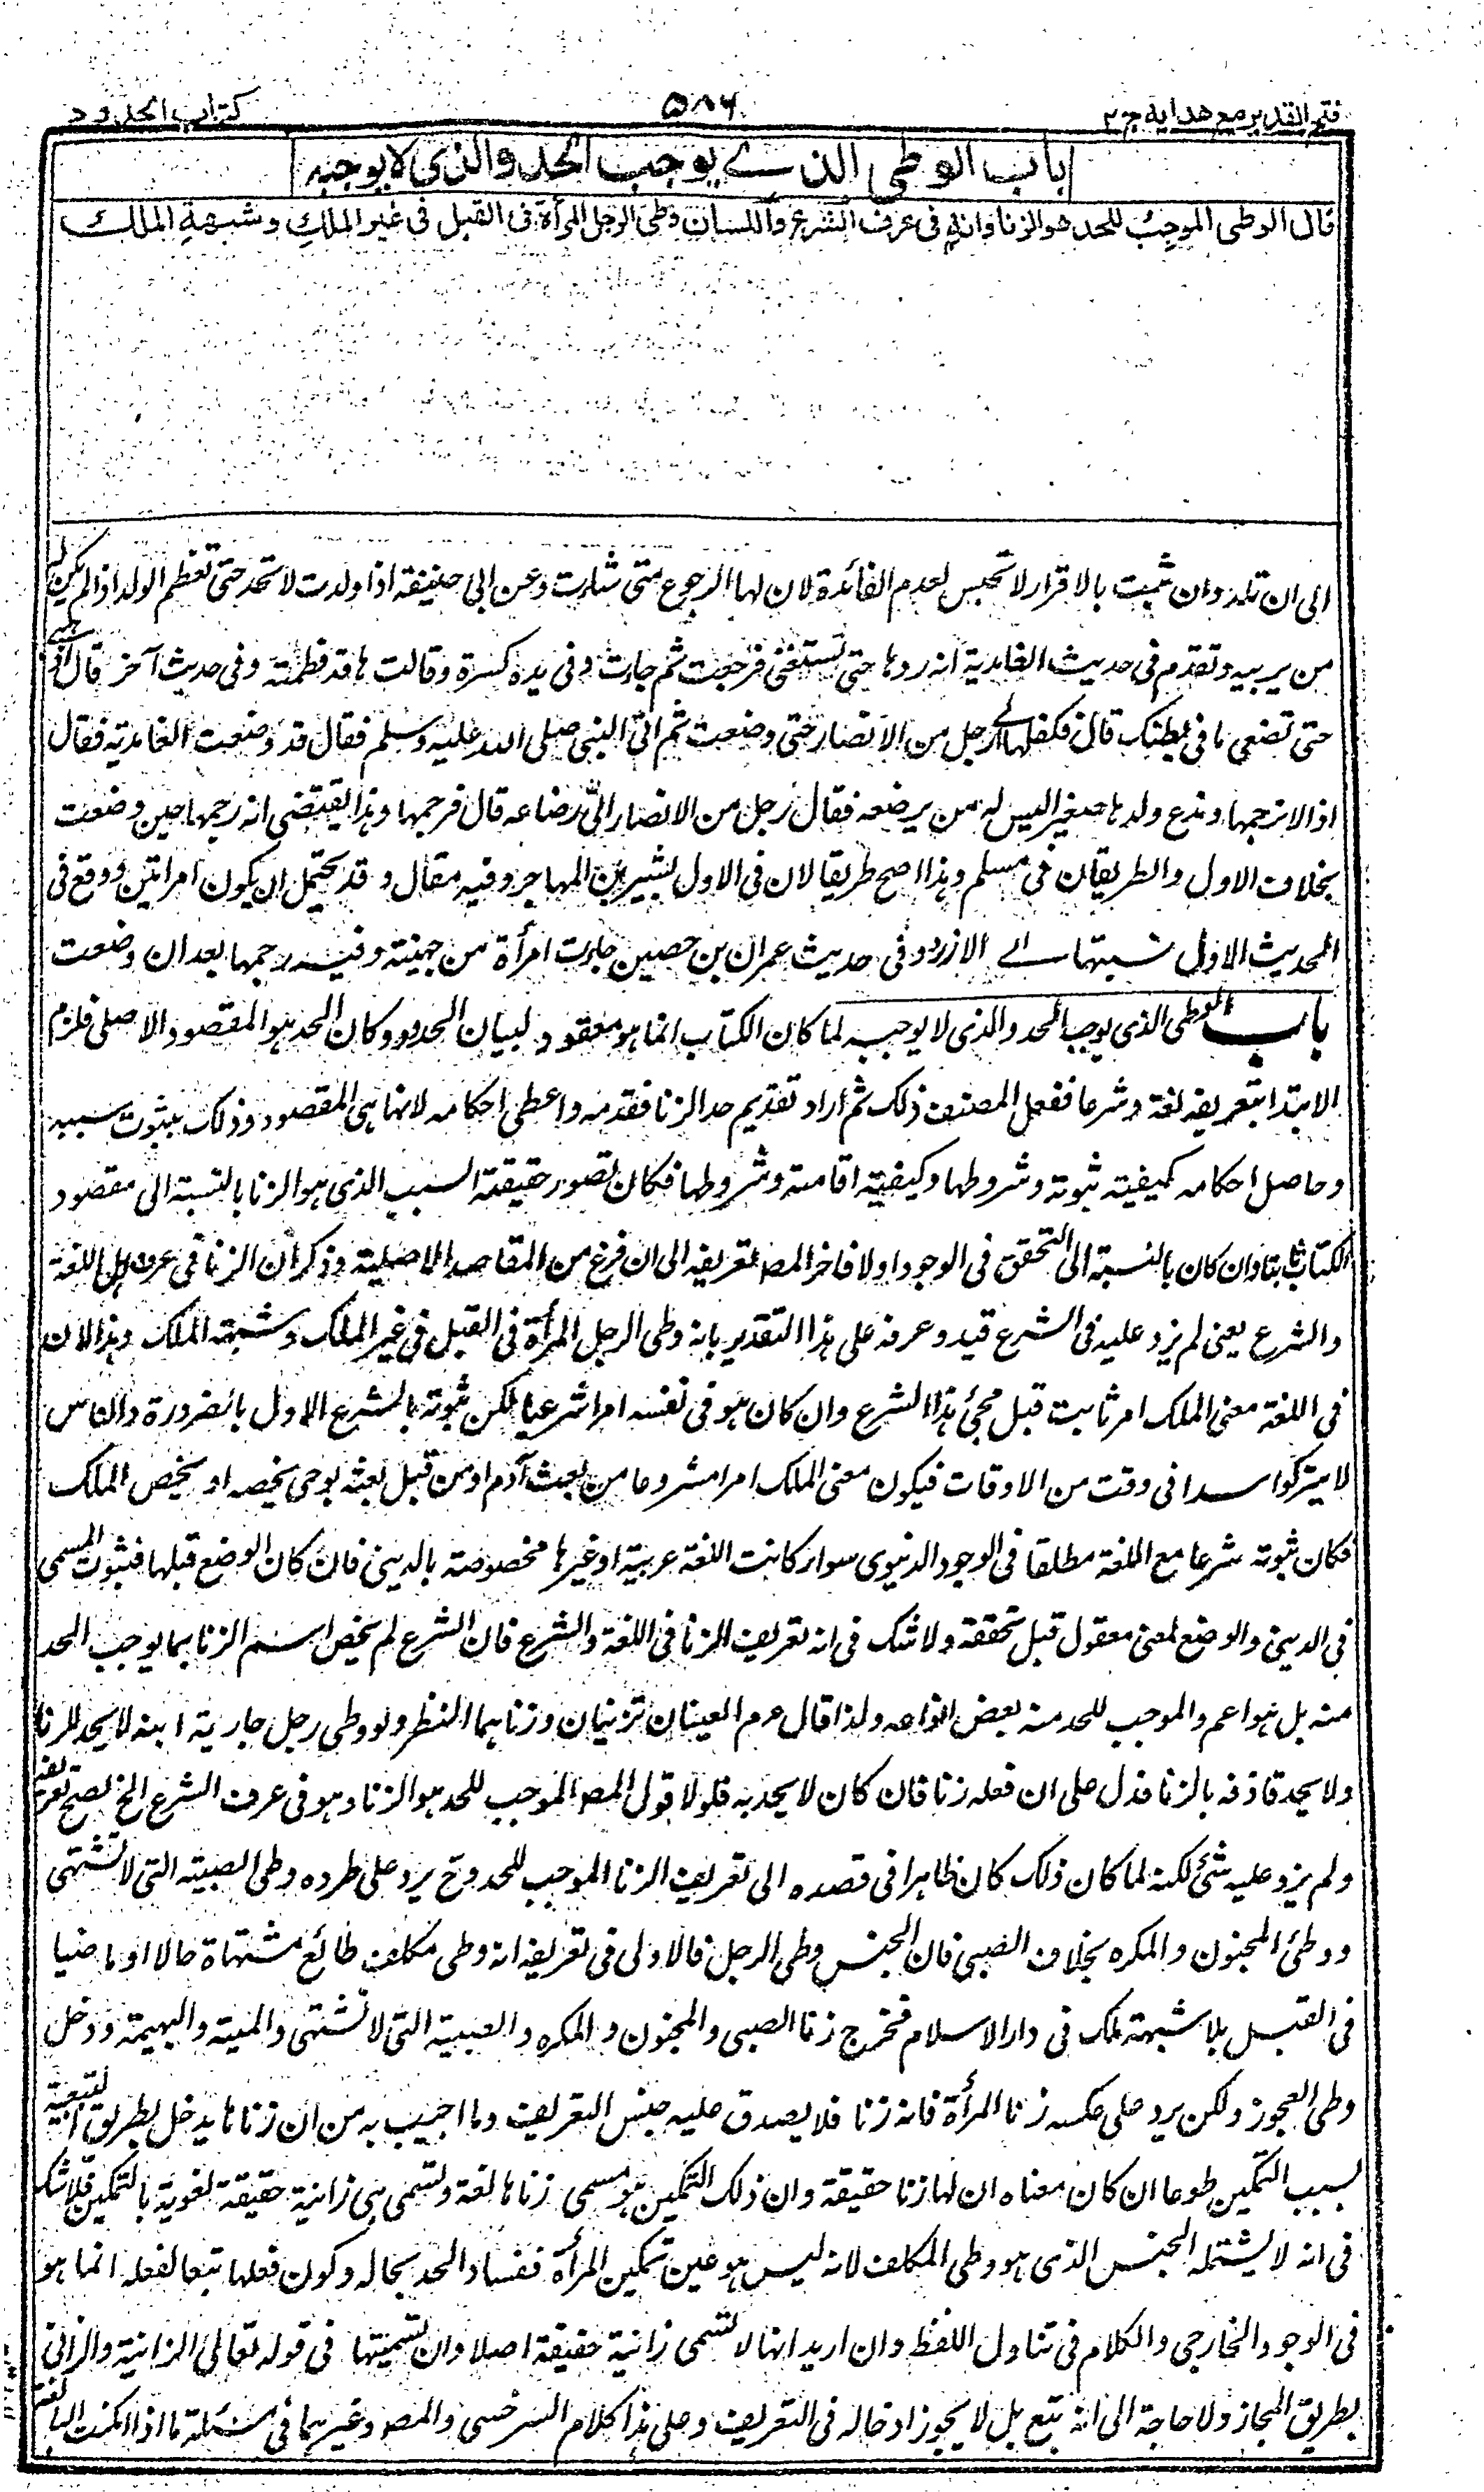 فتح القدير مع هدايه ج ٢
٥٨٦
كتاب الحدود
باب الوطي الذي يوجب الحد والذي لا يوجبه
قال الوطي الموجب للحد هو الزنا وانه في عرف الشرع واللسان وطي الرجل المرأة في القبل في غير الملك وشبهة الملك
الى ان تلد وان ثبت بالاقرار لا تحبس لعدم الفائدة لان لها الرجوع متى شاءت وعن ابي حنيفة اذا ولدت لا تحد حتى تفطم الولد اذا لم يكن له
من يربيه وتقدم في حديث الغامدية انه ردها حتى تستغني فرجعت ثم جاءت وفي يده كسرة وقالت ها قد فطمته وفي حديث آخر قال اذهبي
حتى تضعي ما في بطنك قال فكفلها رجل من الانصار حتى وضعت ثم اتى النبي صلى الله عليه وسلم فقال قد وضعت الغامدية فقال
اذا لا نرجمها وندع ولدها صغيرا ليس له من يرضعه فقال رجل من الانصار الي رضاعه قال فرجمها وهذا يقتضي انه رجمها حين وضعت
بخلاف الاول والطريقان في مسلم وهذا اصح طريقا لان في الاول بشير بن المهاجر وفيه مقال وقد يحتمل ان يكون امرأتين ووقع في
الحديث الاول نسبتها الى الازد وفي حديث عمران بن حصين جاءت امرأة من جهينة وفيه رجمها بعد ان وضعت
باب الوطي الذي يوجب الحد والذي لا يوجبه لما كان الكتاب انما هو معقود لبيان الحدود وكان الحد هو المقصود الاصلي فلزم
الابتدا بتعريفه لغة وشرعا ففعل المصنف ذلك ثم اراد تقديم حد الزنا فقدمه واعطى احكامه لانها هي المقصود وذلك بثبوت سببه
وحاصل احكامه كيفية ثبوته وشروطها وكيفية اقامته وشروطها فكان تصور حقيقة السبب الذي هو الزنا بالنسبة الى مقصود
الكتاب ثابتا وان كان بالنسبة الى التحقق في الوجود اولا فاخر المصـ تعريفه الى ان فرغ من المقاصد الاصلية وذكر ان الزنا في عرف اهل اللغة
والشرع يعني لم يزد عليه في الشرع قيد وعرفه على هذا التقدير بانه وطي الرجل المرأة في القبل في غير الملك وشبهة الملك وهذا لان
في اللغة معنى الملك امر ثابت قبل مجئ هذا الشرع وان كان هو في نفسه امرا شرعيا لكن ثبوته بالشرع الاول بالضرورة والناس
لا يتركوا سدا في وقت من الاوقات فيكون معنى الملك امرا مشروعا من بعث آدم او من قبل بعثه بوحي يخصه او يخص الملك
فكان ثبوته شرعا مع اللغة مطلقا في الوجود الدنيوي سواء كانت اللغة عربية او غيرها مخصوصة بالديني فان كان الوضع قبلها فثبوت المسمى
في الديني والوضع لمعنى معقول قبل تحققه ولا شك في انه تعريف للزنا في اللغة والشرع فان الشرع لم يخص اسم الزنا بما يوجب الحد
منه بل هو اعم والموجب للحد منه بعض انواعه ولذا قال عم العينان تزنيان وزناهما النظر ولو وطي رجل جارية ابنه لا يحد للزنا
ولا يحد قاذفه بالزنا فدل على ان فعله زنا فان كان لا يحد به فلو لا قول المصـ الموجب للحد هو الزنا وهو في عرف الشرع الخ لصح تعريفه
ولم يزد عليه شئ لكنه لما كان ذلك كان ظاهرا في قصده الى تعريف الزنا الموجب للحد وح يرد على طرده وطي الصبية التي لا تشتهى
ووطئ المجنون والمكره بخلاف الصبي فان الجنس وطي الرجل فالاولى في تعريفه انه وطي مكلف طائع مشتهاة حالا او ماضيا
في القبل بلا شبهة ملك في دار الاسلام فخرج زنا الصبي والمجنون والمكره والصبية التي لا تشتهى والميتة والبهيمة ودخل
وطي العجوز ولكن يرد على عكسه زنا المرأة فانه زنا فلا يصدق عليه جنس التعريف وما اجيب به من ان زناها يدخل بطريق التبعية
بسبب التمكين طوعا ان كان معناه ان لها زنا حقيقة وان ذلك التمكين هو مسمى زناها لغة وتسمى هي زانية حقيقة لغوية بالتمكين فلا شك
في انه لا يشتمله الجنس الذي هو وطي المكلف لانه ليس هو عين تمكين المرأة ففساد الحد بحاله وكون فعلها تبعا لفعله انما هو
في الوجود الخارجي والكلام في تناول اللفظ وان اريد انها لا تسمى زانية حقيقة اصلا وان تسميتها في قوله تعالى الزانية والزاني
بطريق المجاز ولا حاجة الى انه تبع بل لا يجوز ادخاله في التعريف وعلى هذا كلام السرخسي والمصـ وغيرهما في مسئلة ما اذا مكنت البالغة